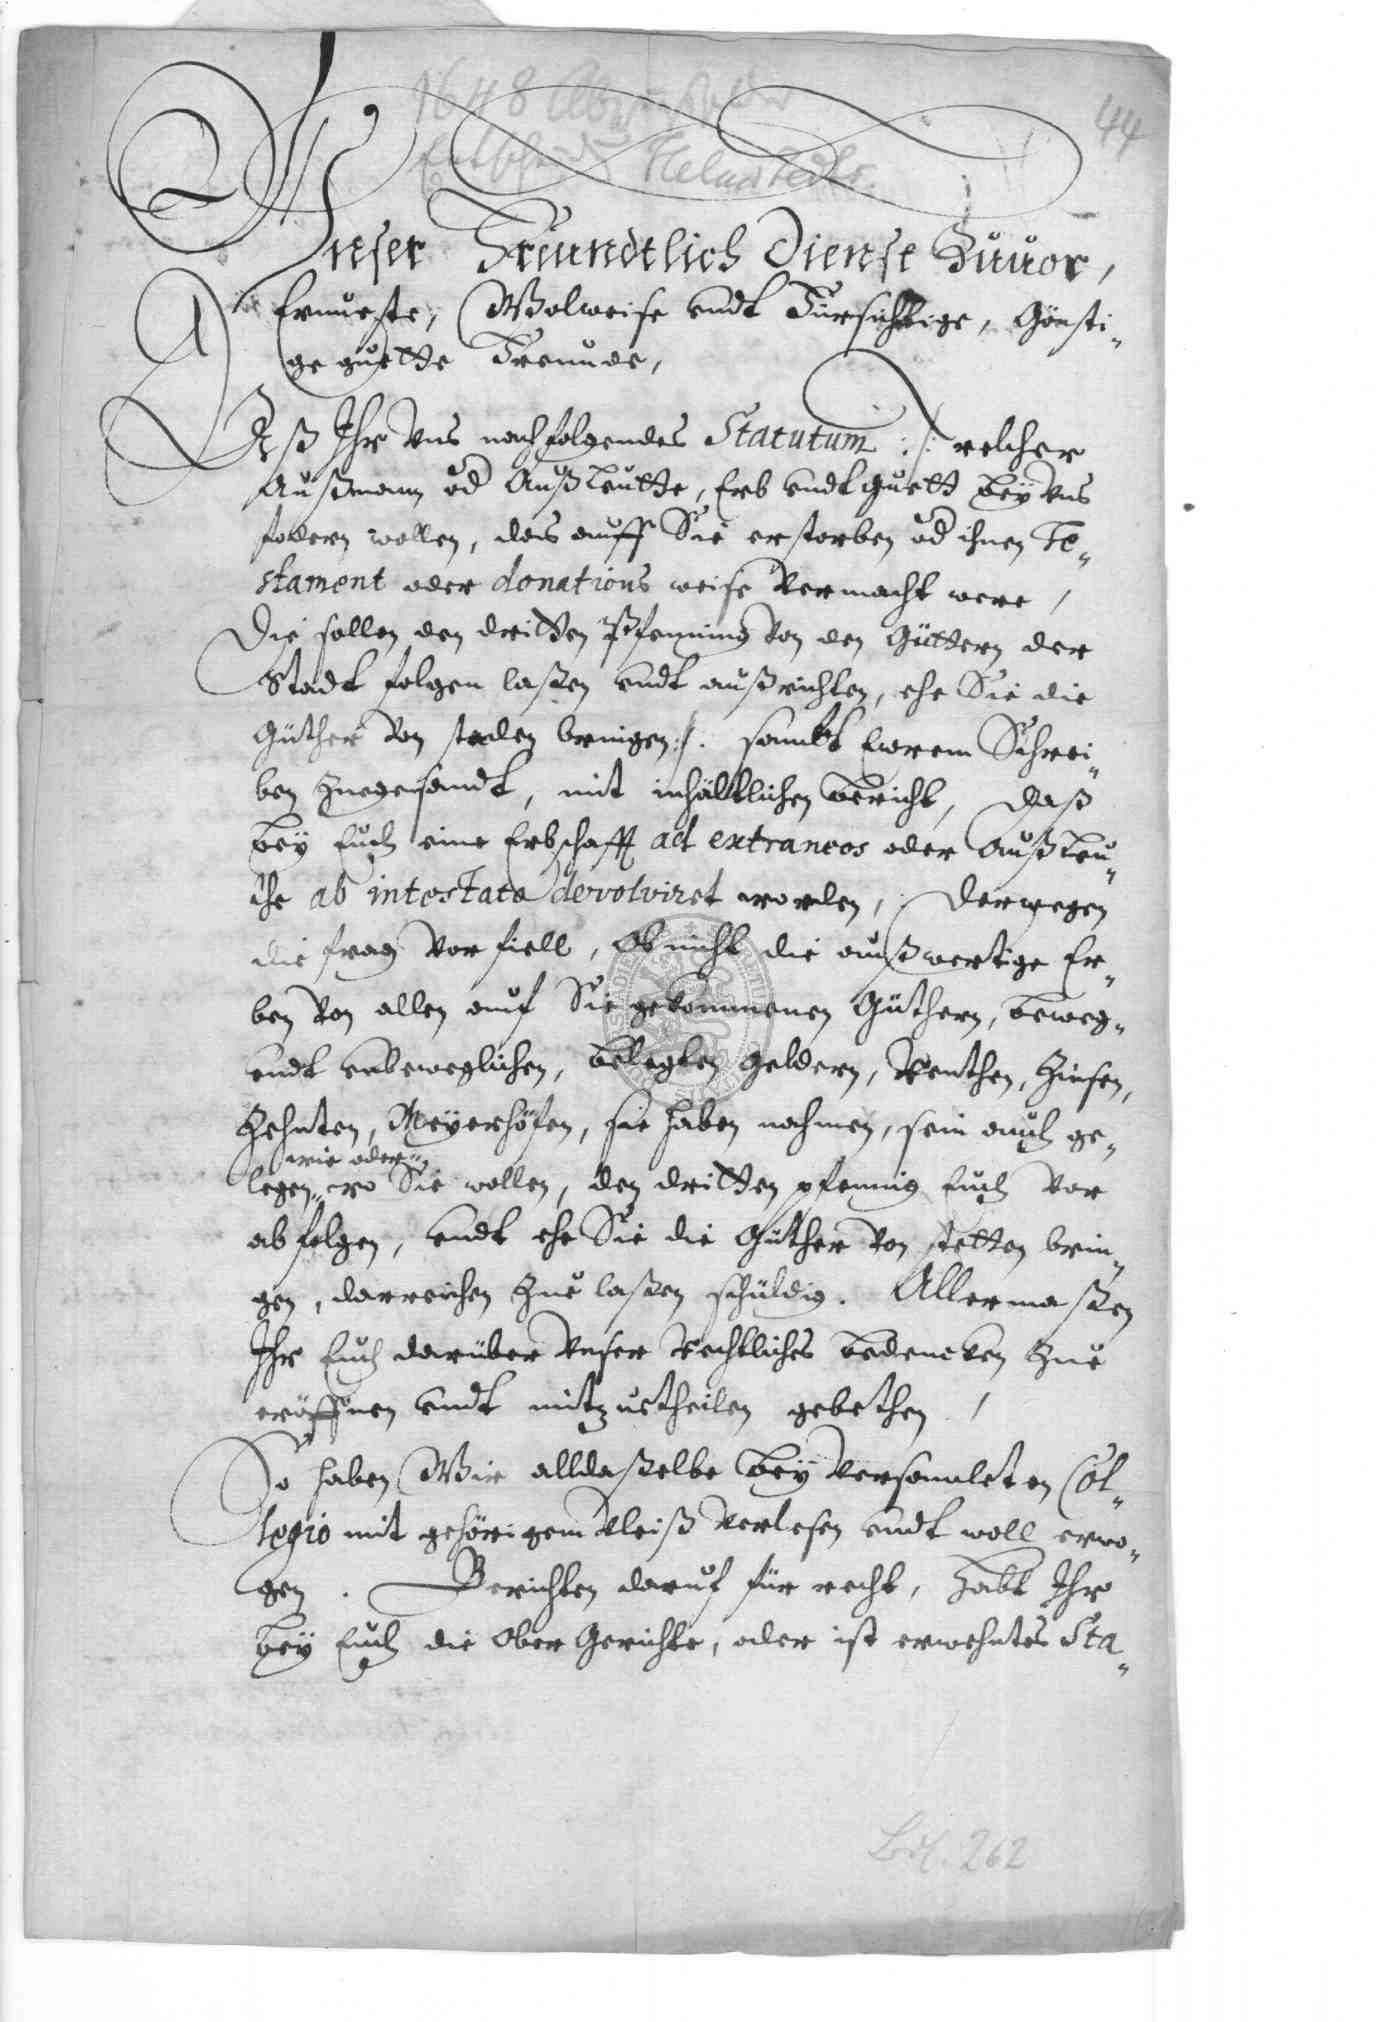 44
1648
Helmstedt.
Unser Freundtlich Dienst Zuuor,
Ernueste, Wolweise undt Fürsichtige, Gönsti„
ge guette Freunde,
Alß Ihr uns nachfolgendes Statutum :/: welcher
Außmann od Außleutte, Erb undt guett bey uns
fodern wollen, das auff Sie erstorben od ihnen Te„
stament oder donations weise vermacht were,
Die sollen den dritten Pfenning von den Güttern der
Stadt folgen laßen undt außrichten, ehe Sie die
Güther von staden bringen :/: sambt Ewrem Schrei„
ben zuegesandt, mit inhältlichen bericht, Daß
bey Euch eine Erbschafft ad extraneos oder Außleu„
the ab intestato devolviret worden, Derwegen
die frag vorfiell, Ob nicht die außwertige Er„
ben von allen auf Sie gekommenen Güthern, beweg„
undt unbeweglichen, belegten geldern, Renthen, Zinsen,
Zehnten, Meyerhöfen, sie haben nahmen, sein auch ge„
wie oder„
legen„ wo Sie wollen, den dritten pfennig Euch vor
abfolgen, undt ehe Sie die Güther von stetten brin„
gen, darreichen zue laßen schüldig. Allermaßen
Ihr Euch darüber unser Rechtliches bedencken zue
eröffnen undt mitzutheilen gebethen,
So haben Wir alldaßelbe bey versamleten Col„
legio mit gehörigem vleiß verlesen undt woll erwo„
gen. Berichten daruf für recht, Habt Ihr
bey Euch die Ober Gerichte, oder ist erwehntes Sta„
262